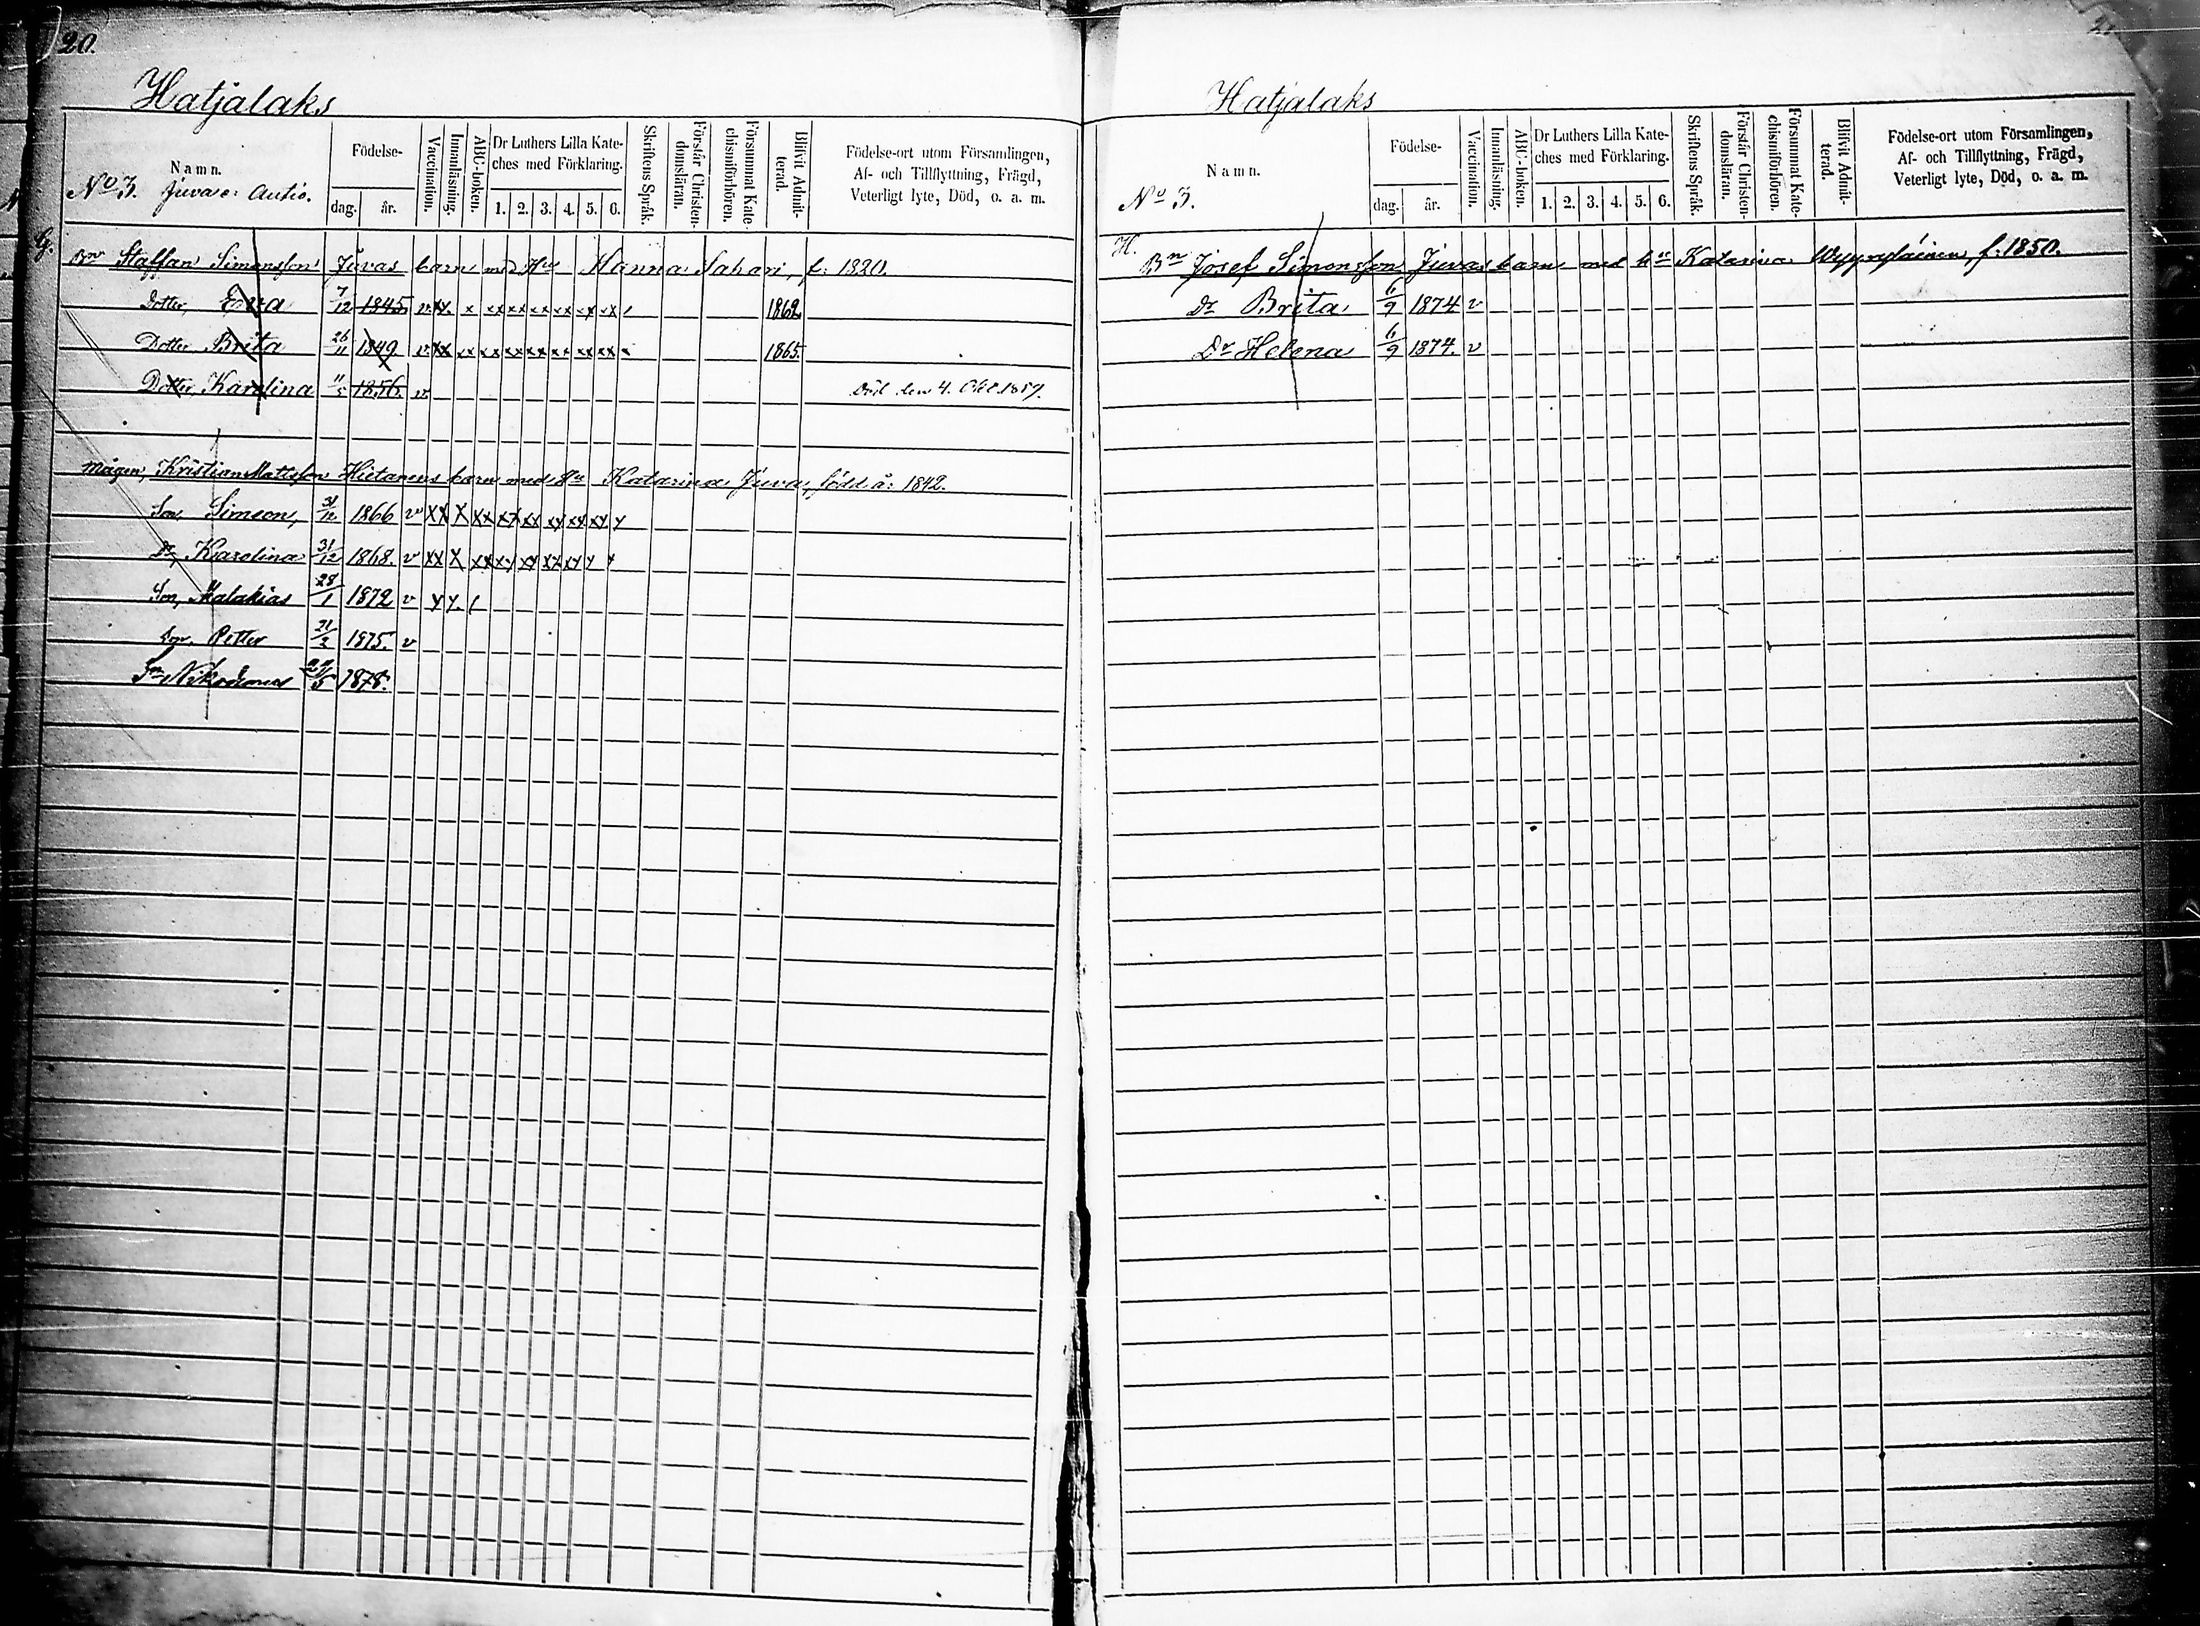 20.
Hatjalaks
Namn. Födelse- dag. år. Vaccination. Innanläsning. ABC-boken. Dr Luthers Lilla Kateches med Förklaring. 1. 2. 3. 4. 5. 6. Skriftens Språk. Förstår Christendomsläran. Försummat Katechismiförhören. Blifvit Admitterad. Födelse-ort utom Församlingen, Af- och Tillflyttning, Frägd, Veterligt lyte, Död, o. a. m.
No 3. Juva e: Autio.
G. Bn Staffan Simonsson Juvas barn med Hu Hanna Sahari, f: 1820.
Dotter, Eva 7/12 1845 v xx. x xx xx xx xx xx xx / 1862.
Dotter Brita 26/11 1849 v xx xx xx xx xx xx xx xx 1865.
Dotter, Karolina 11/5 1856. v Död den 4. Okt 1857.
Mågen, Kristian Mattsson Hietanens barn med Hu Katarina Juva, född år 1842.
Son, Simeon, 31/12 1866 v xx x xx xx xx xx xx xx y
Dr, Karolina 31/12 1868. v xx x xx xy xx xx xy y y
Son, Malakias 28/1 1872 v y y. /
Son, Petter 21/2 1875. v
Sn Nikodemus 29/5 1878.
Hatjalaks
Namn. Födelse- dag. år. Vaccination. Innanläsning. ABC-boken. Dr Luthers Lilla Kateches med Förklaring. 1. 2. 3. 4. 5. 6. Skriftens Språk. Förstår Christendomsläran. Försummat Katechismiförhören. Blifvit Admitterad. Födelse-ort utom Församlingen, Af- och Tillflyttning, Frägd, Veterligt lyte, Död, o. a. m.
No 3.
H. Bn Josef Simonsson Juvas barn med hu Katarina f: 1850.
Dr Brita 6/9 1874 v
Dr Helena 6/9 1874. v